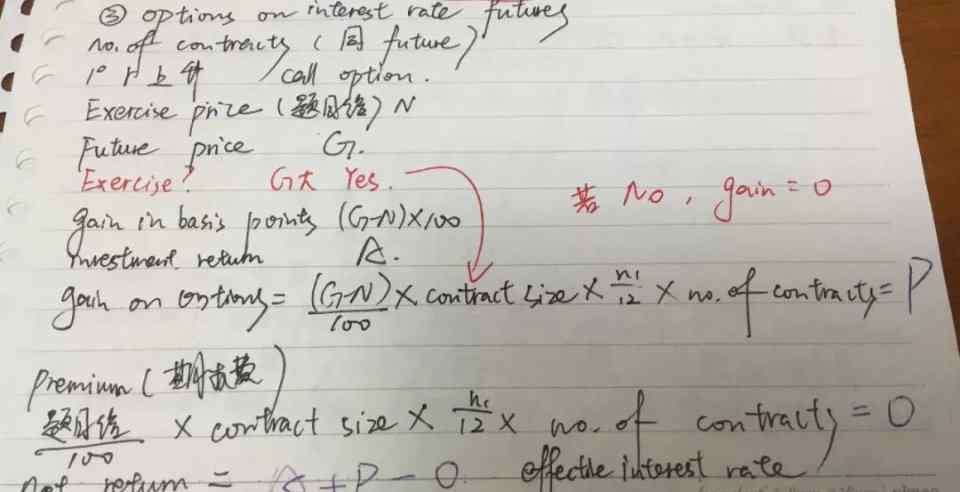 ③ options on interest rate futures
no. of contracts (同 future)
1° 上升 / call option.
Exercise price (题目给) N
Future price G.
Exercise? G大 Yes. 若 No, gain = 0
gain in basis points (G-N)×100
investment return A.
gain on options = (G-N)/100 × contract size × n₁/12 × no. of contracts = P
Premium (期权费)
题目给/100 × contract size × n₁/12 × no. of contracts = O
Net return = A + P - O. effective interest rate